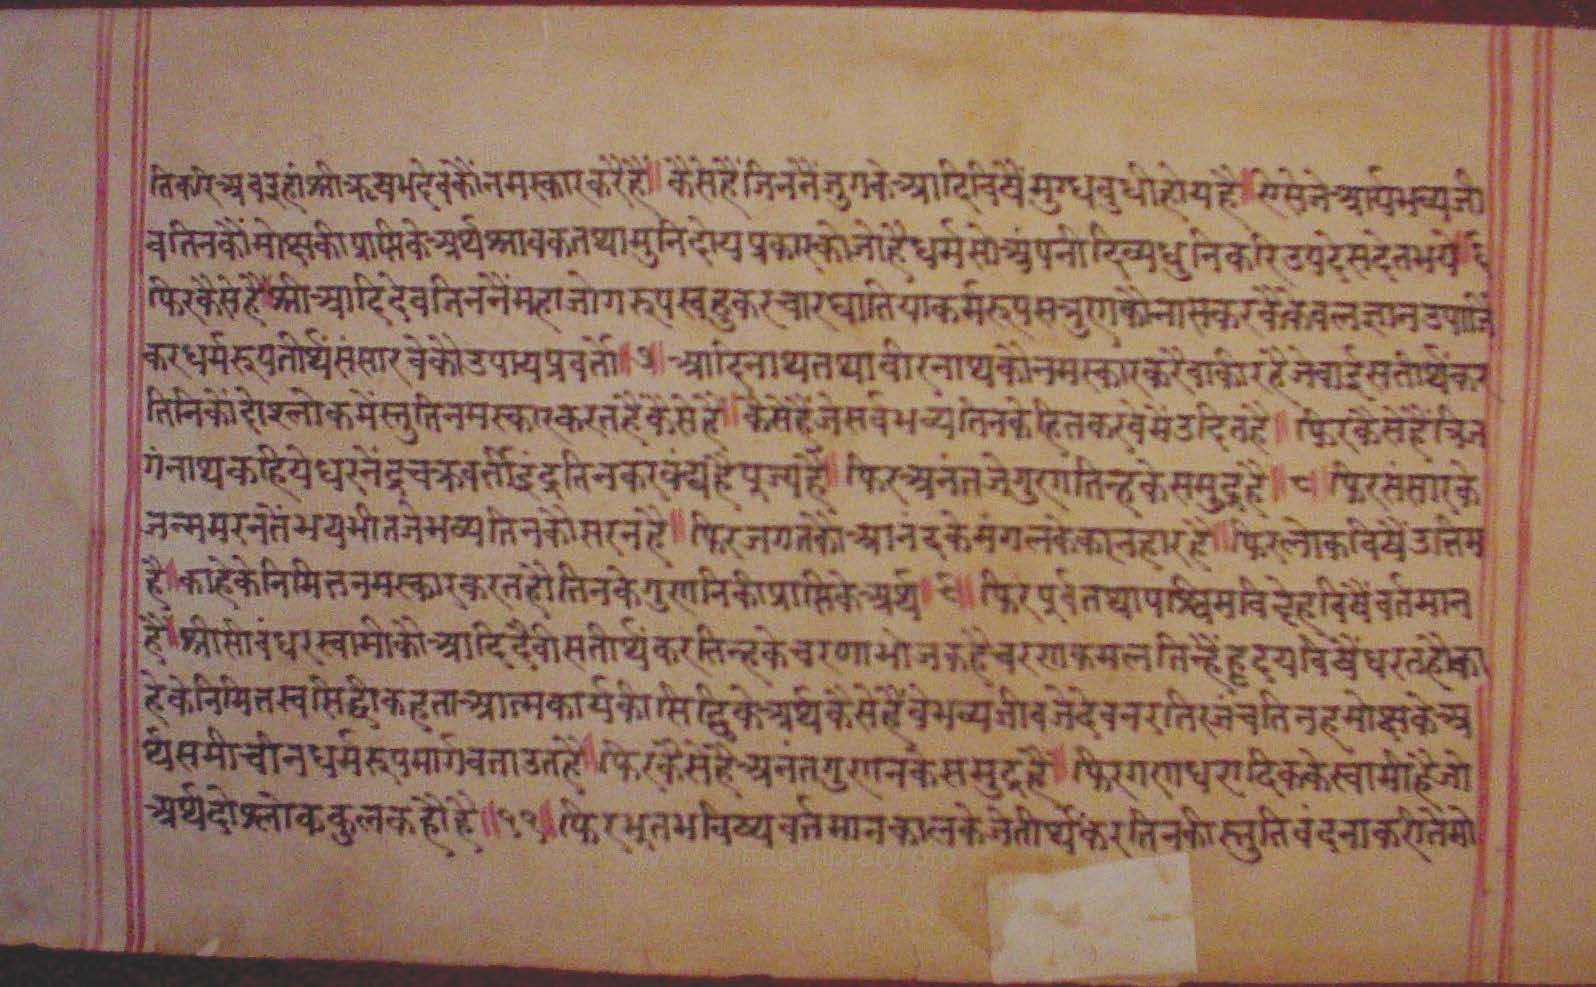 तिकरि अव इहां श्रीऋषभदेवकौं नमस्कार करै हौं ॥ कैसे हैं जिननैं जुगके आदिविषैं मुग्ध बुधी होय है ॥ एसे जे आर्य भव्य जी
व तिनकौं मोक्षकी प्राप्तिके अर्थ श्रावक तथा मुनि दोय प्रकारको जो है धर्म सो अपनी दिव्यधुनि करि उपदेस देत भये ॥ ६
फिर कैसे है ॥ श्रीआदिदेव तिननैं महा जोग रूप कर च्यार घातिया कर्मरूप सत्रुणकौ नास करकैं केवलज्ञान उपार्जि
कर धर्मरूप तीर्थ संसार वेकौ उपाय प्रवर्तौ ॥ ७ ॥ आदिनाथ तथा वीरनाथकौ नमस्कार करै वाकी रहै जे वाईस तीर्थंकर
तिनिकौं दो श्लोकमें स्तुति नमस्कार करत है कैसे है ॥ कैसे हैं जे सर्व भव्य तिनके हित करवेमें उदित है ॥ फिर कैसे हैं त्रिज
गंनाथ कहिये धरनेंद्र चक्रवर्त्ति इंद्र तिन कर वंद्य है पूज्य है ॥ फिर अनंत जे गुण तिन्हके समुद्र है ॥ ८ ॥ फिर संसारके
जन्ममरनतें भयभीत जे भव्य तिनकौ सरन है ॥ फिर जगतकौ आनंदके मंगलके कारनहार है ॥ फिर लोकविषैं उत्तिम
है ॥ काहेके निमित्त नमस्कार करत हौ तिनके गुणनिकी प्राप्तिके अर्थ ॥ ९ ॥ फिर पूर्व तथा पश्चिम विदेहविषैं वर्तमान
हैं ॥ श्रीसीवंधरस्वामीकौ आदि दै वीस तीर्थंकर तिन्हके चरणाभोज कहै चरणकमल तिन्हैं हृदयविषैं धरत हौ का
हेके निमित्त स्वसिद्धी कहता आत्मकार्यकी सिद्धिके अर्थ कैसे हैं वे भव्यजीव जे देव नर तिरजंच तिनह मोक्षके अ
र्थ समीचीन धर्मरूप मार्ग वताउत है ॥ फिर कैसे है अनंत गुणनके समुद्र है ॥ फिर गणधरादिकके स्वामी है जो
अर्थ दो श्लोक कुलक हौ है ॥ ११ ॥ फिर भूत भविष्य वर्त्तमान कालके जे तीर्थंकर तिनकी स्तुति वंदना करी ते मो